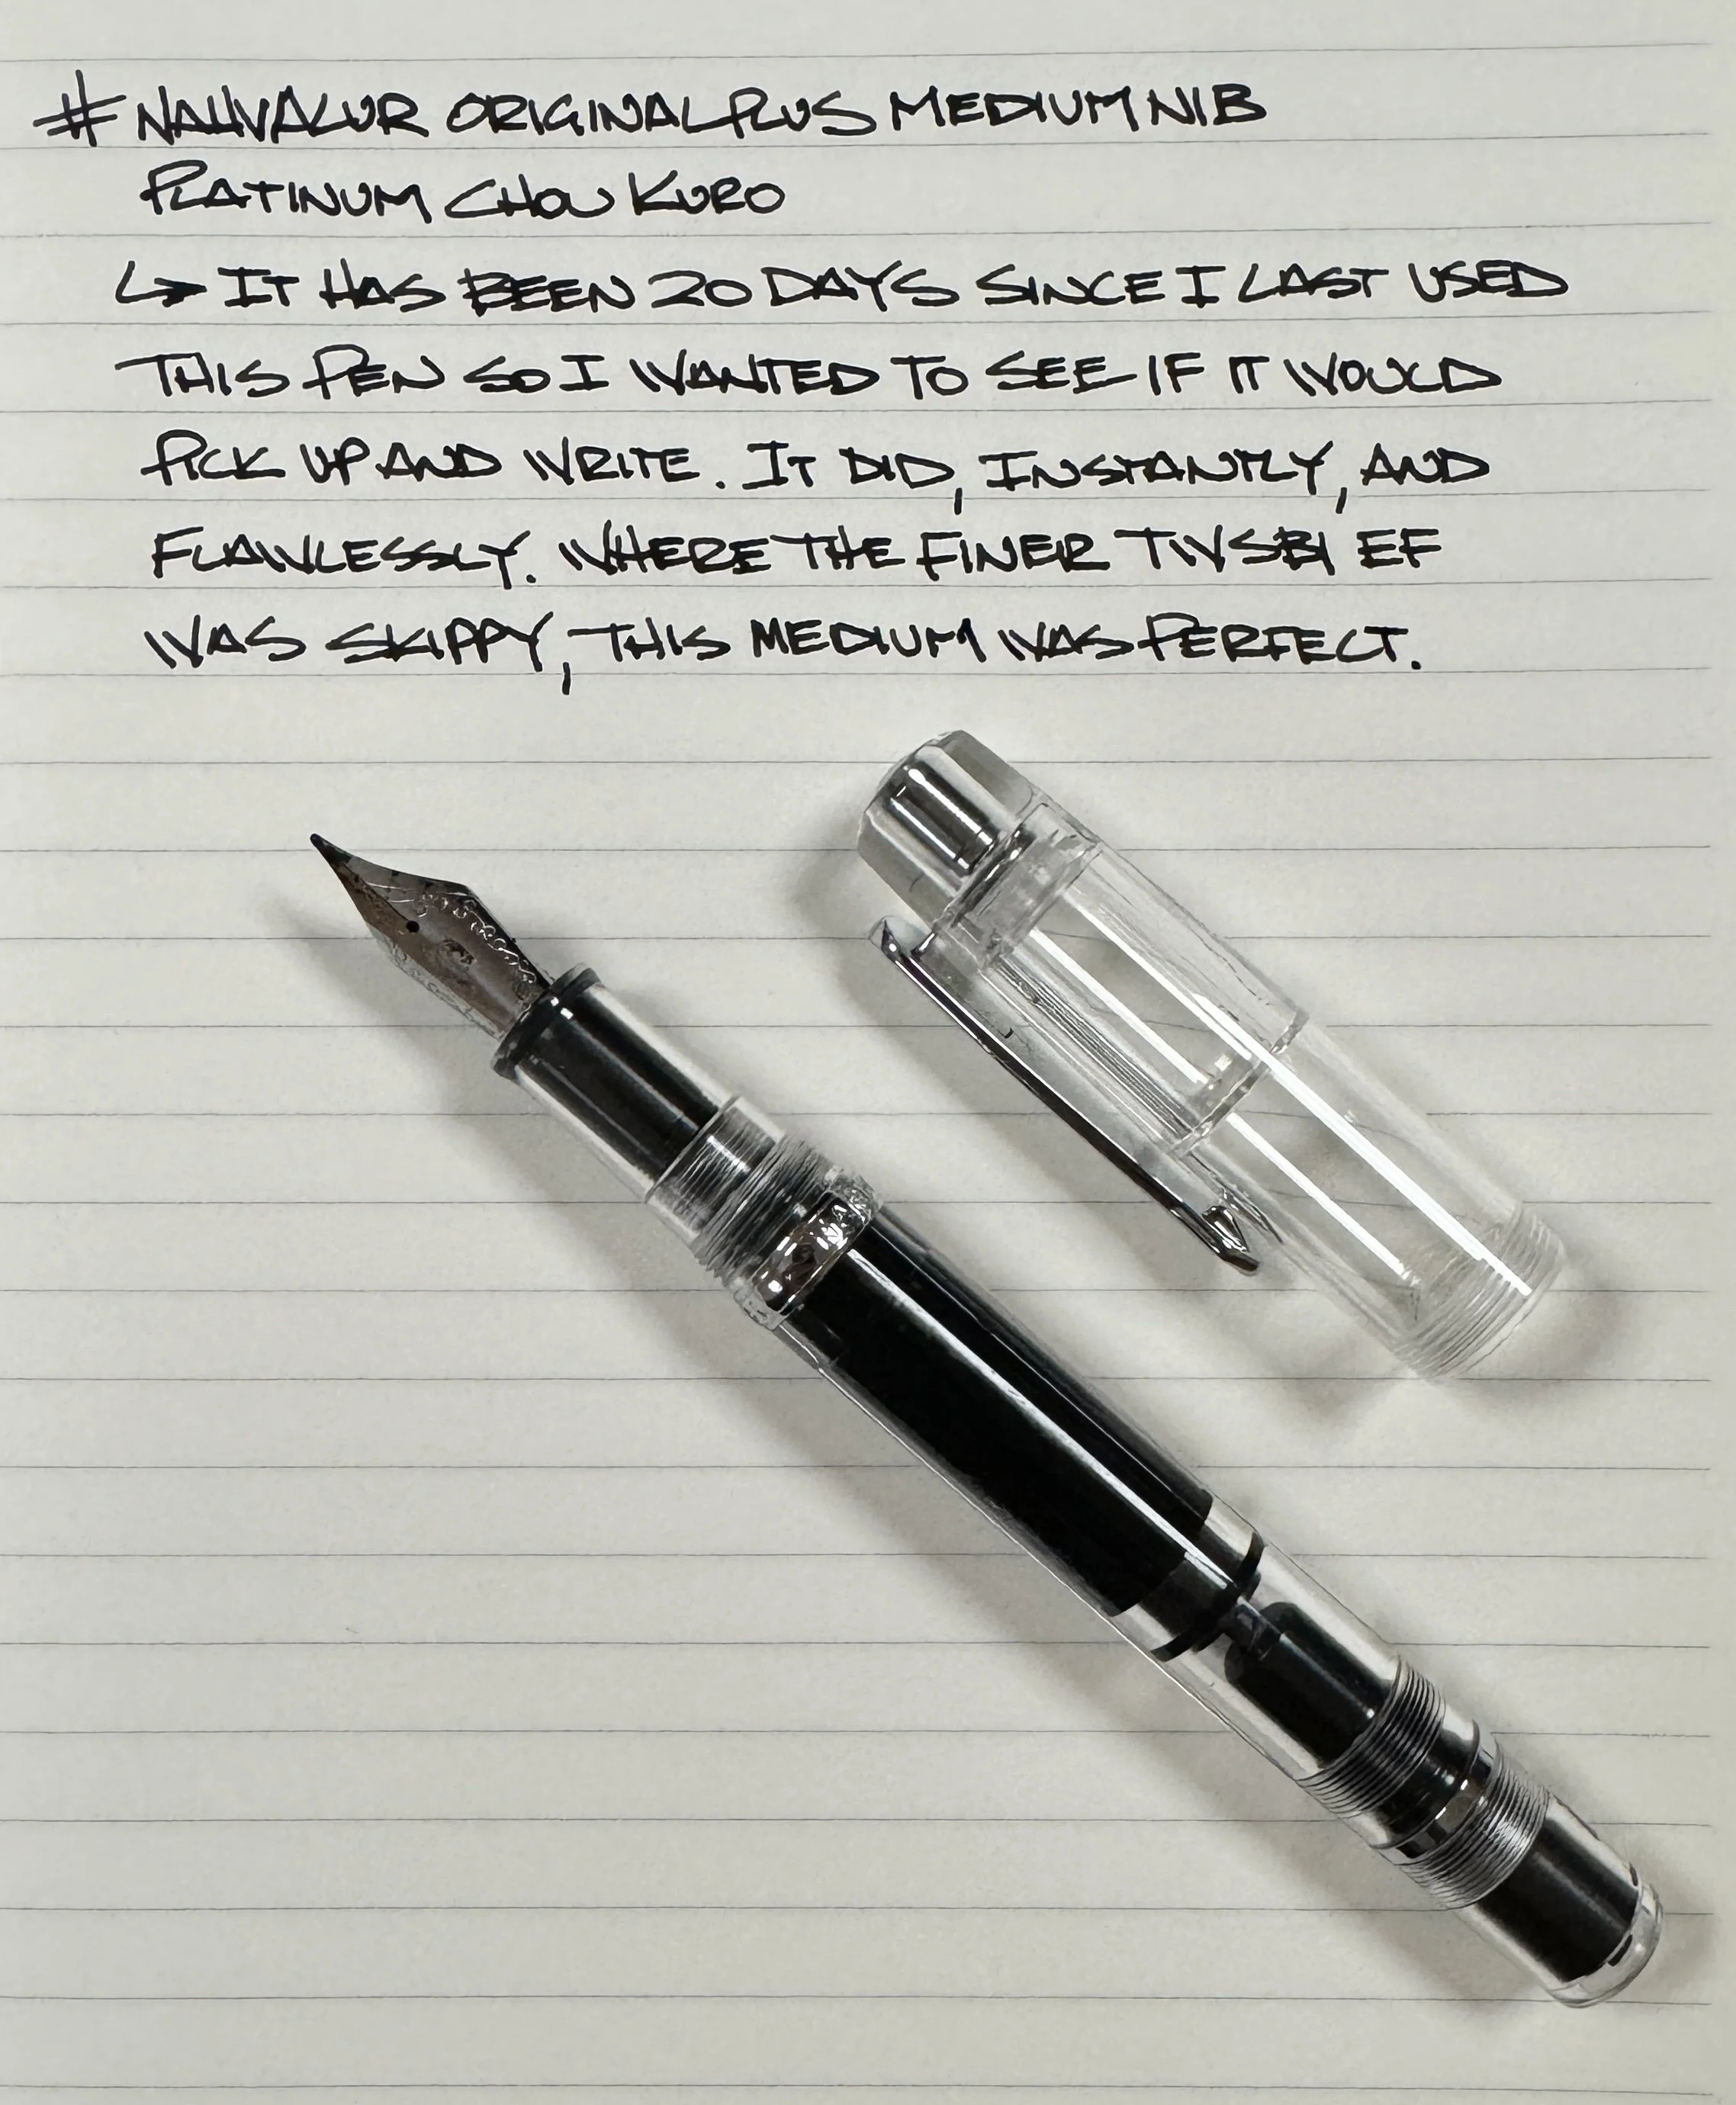 # NAHVALUR ORIGINAL PLUS MEDIUM NIB
PLATINUM CHOU KURO
↳ IT HAS BEEN 20 DAYS SINCE I LAST USED
THIS PEN SO I WANTED TO SEE IF IT WOULD
PICK UP AND WRITE. IT DID, INSTANTLY, AND
FLAWLESSLY. WHERE THE FINER TWSBI EF
WAS SKIPPY, THIS MEDIUM WAS PERFECT.